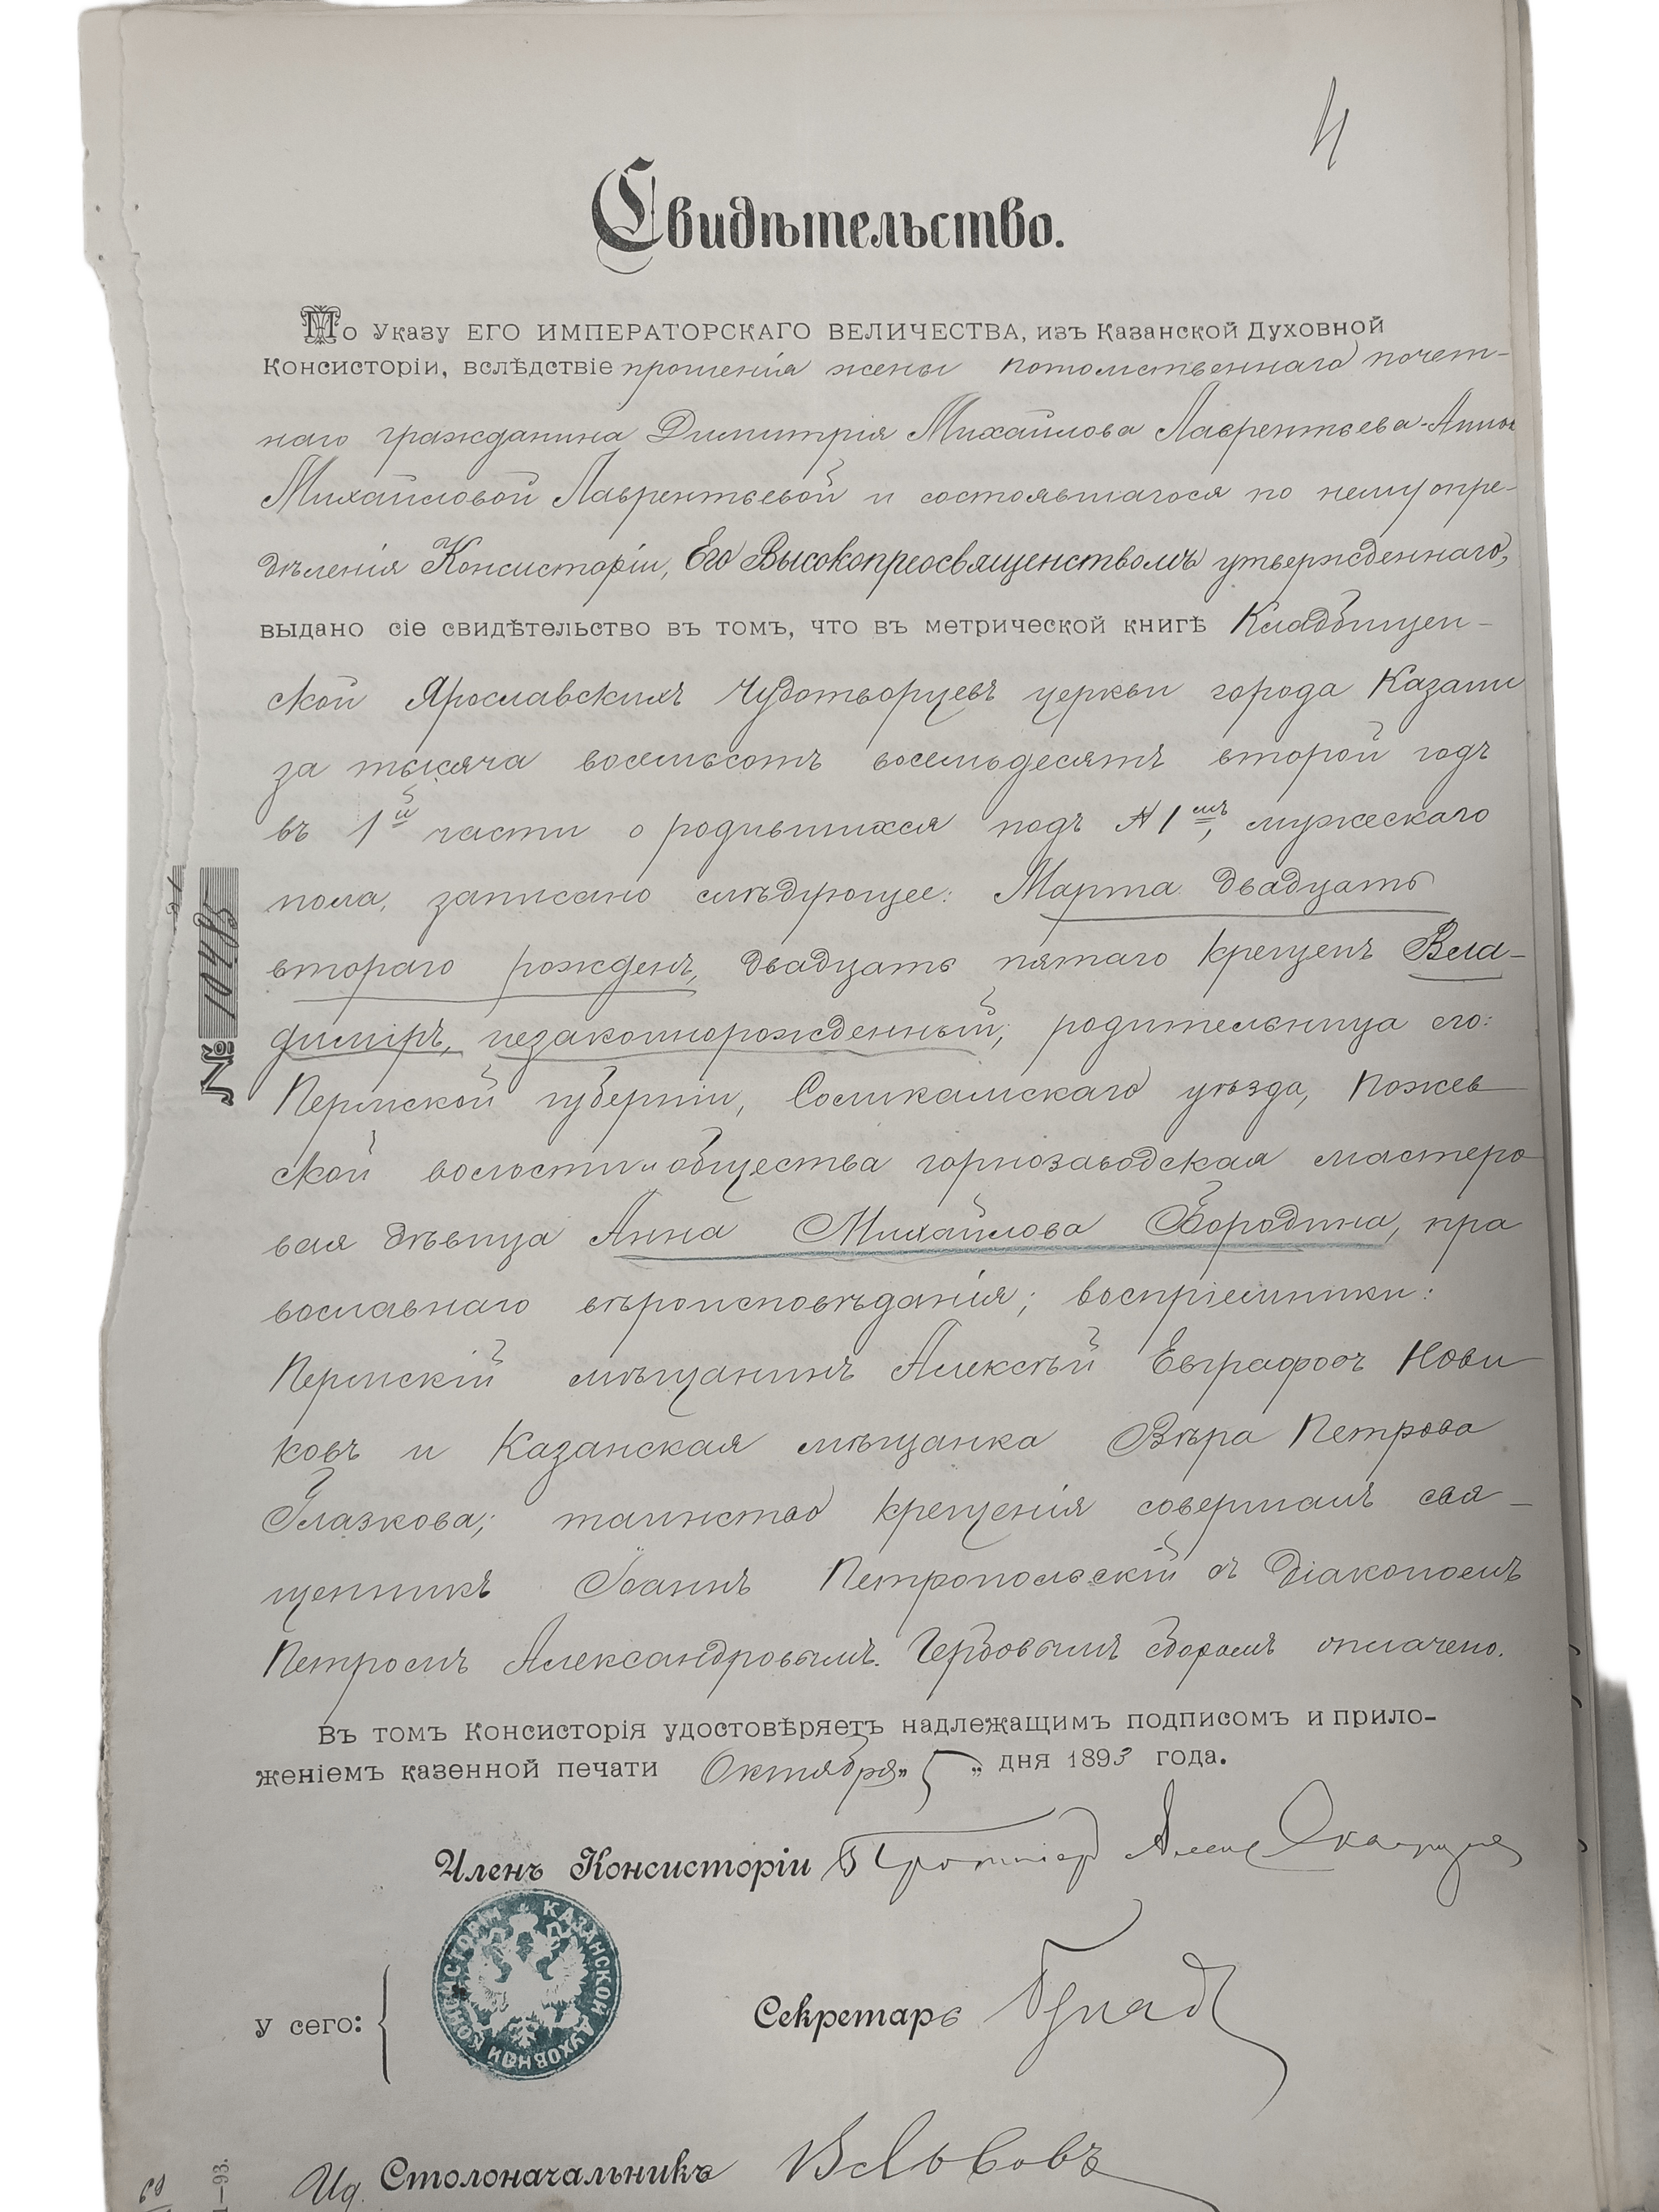 4
Свидѣтельство.
По Указу ЕГО ИМПЕРАТОРСКАГО ВЕЛИЧЕСТВА, изъ Казанской Духовной
Консисторіи, вслѣдствіе прошенія жены потомственнаго почет-
наго гражданина Димитрія Михайлова Лаврентьева-Анны
Михайловой Лаврентьевой и состоявшагося по нему опре-
дѣленія Консисторіи, Его Высокопреосвященствомъ утвержденнаго,
выдано сіе свидѣтельство въ томъ, что въ метрической книгѣ Кладбищен-
ской Ярославскихъ Чудотворцевъ церкви города Казани
за тысяча восемьсотъ восемьдесятъ второй годъ
въ 1й части о родившихся подъ № 1мъ, мужескаго
пола, записано слѣдующее: Марта двадцать
втораго рожденъ, двадцать пятаго крещенъ Вла-
диміръ, незаконнорожденный; родительница его:
Пермской губерніи, Соликамскаго уѣзда, Пожев
ской волости и общества горнозаводская мастеро
вая дѣвица Анна Михайлова Бородина, пра
вославнаго вѣроисповѣданія; воспріемники:
Пермскій мѣщанинъ Алексѣй Евграфовъ Нови
ковъ и Казанская мѣщанка Вѣра Петрова
Глазкова; таинство крещенія совершалъ свя-
щенникъ Іоаннъ Петропольскій съ діакономъ
Петромъ Александровымъ. Гербовымъ сборомъ оплачено.
Въ томъ Консисторія удостовѣряетъ надлежащимъ подписомъ и прило-
женіемъ казенной печати Октября „ 5 „ дня 1893 года.
Членъ Консисторіи Протоіер
КАЗАНСКОЙ ДУХОВНОЙ КОНСИСТОРІИ
у сего:
Секретарь
Ид. Столоначальникъ В Львовъ
№ 10485